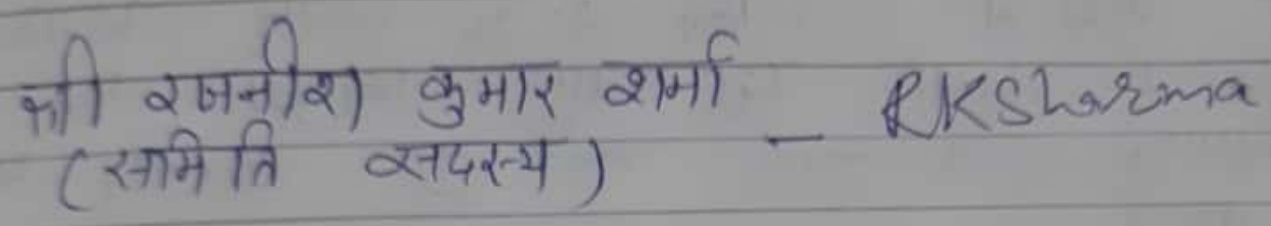 श्री रजनीश कुमार शर्मा
(समिति सदस्य) - RKSharma